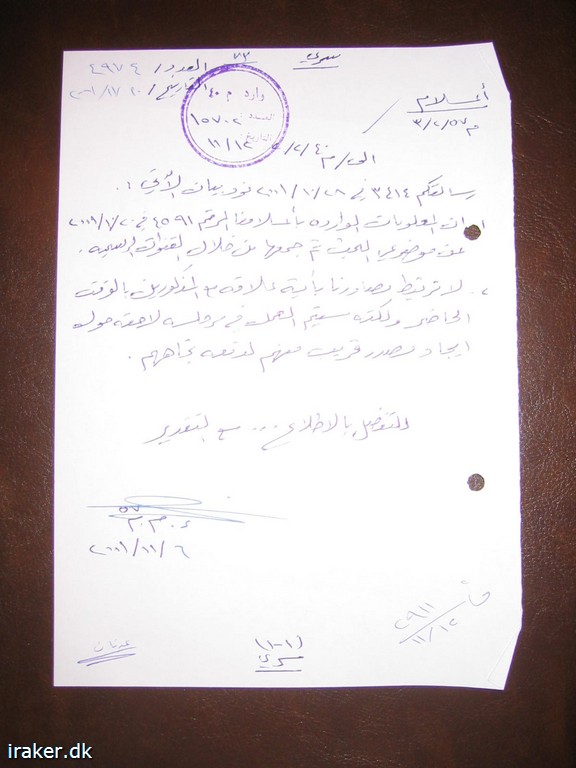 سري
٧٣
العدد/ ٤٩٧٤
أعلام
م ٥٧/٢/٣
وارد م ٤٠
العدد ١٥٧٠٢
التاريخ ١١/١٢
الى/ م ٤٠/٢/٢
رسالتكم ٣٤١٤ في ٢٨/١٠/٢٠٠١ نود بيان الأتي:
ان المعلومات الواردة بأعلامنا المرقم ٤٥٩١ في
عن موضوعي البحث تم جمعها من خلال القنوات الرسمية.
٢. لا ترتبط مصادرنا بأية علاقة مع المذكورين بالوقت
الحاضر ولكنه سيتم العمل في مرحلة لاحقة حول
ايجاد مصدر قريب منهم لدفعه تجاههم.
للتفضل بالاطلاع ... مع التقدير
٥٧
٢٠٠١/١١/٦
٢٩١١
١١/١٢
(١-١)
سري
عدنان
iraker.dk